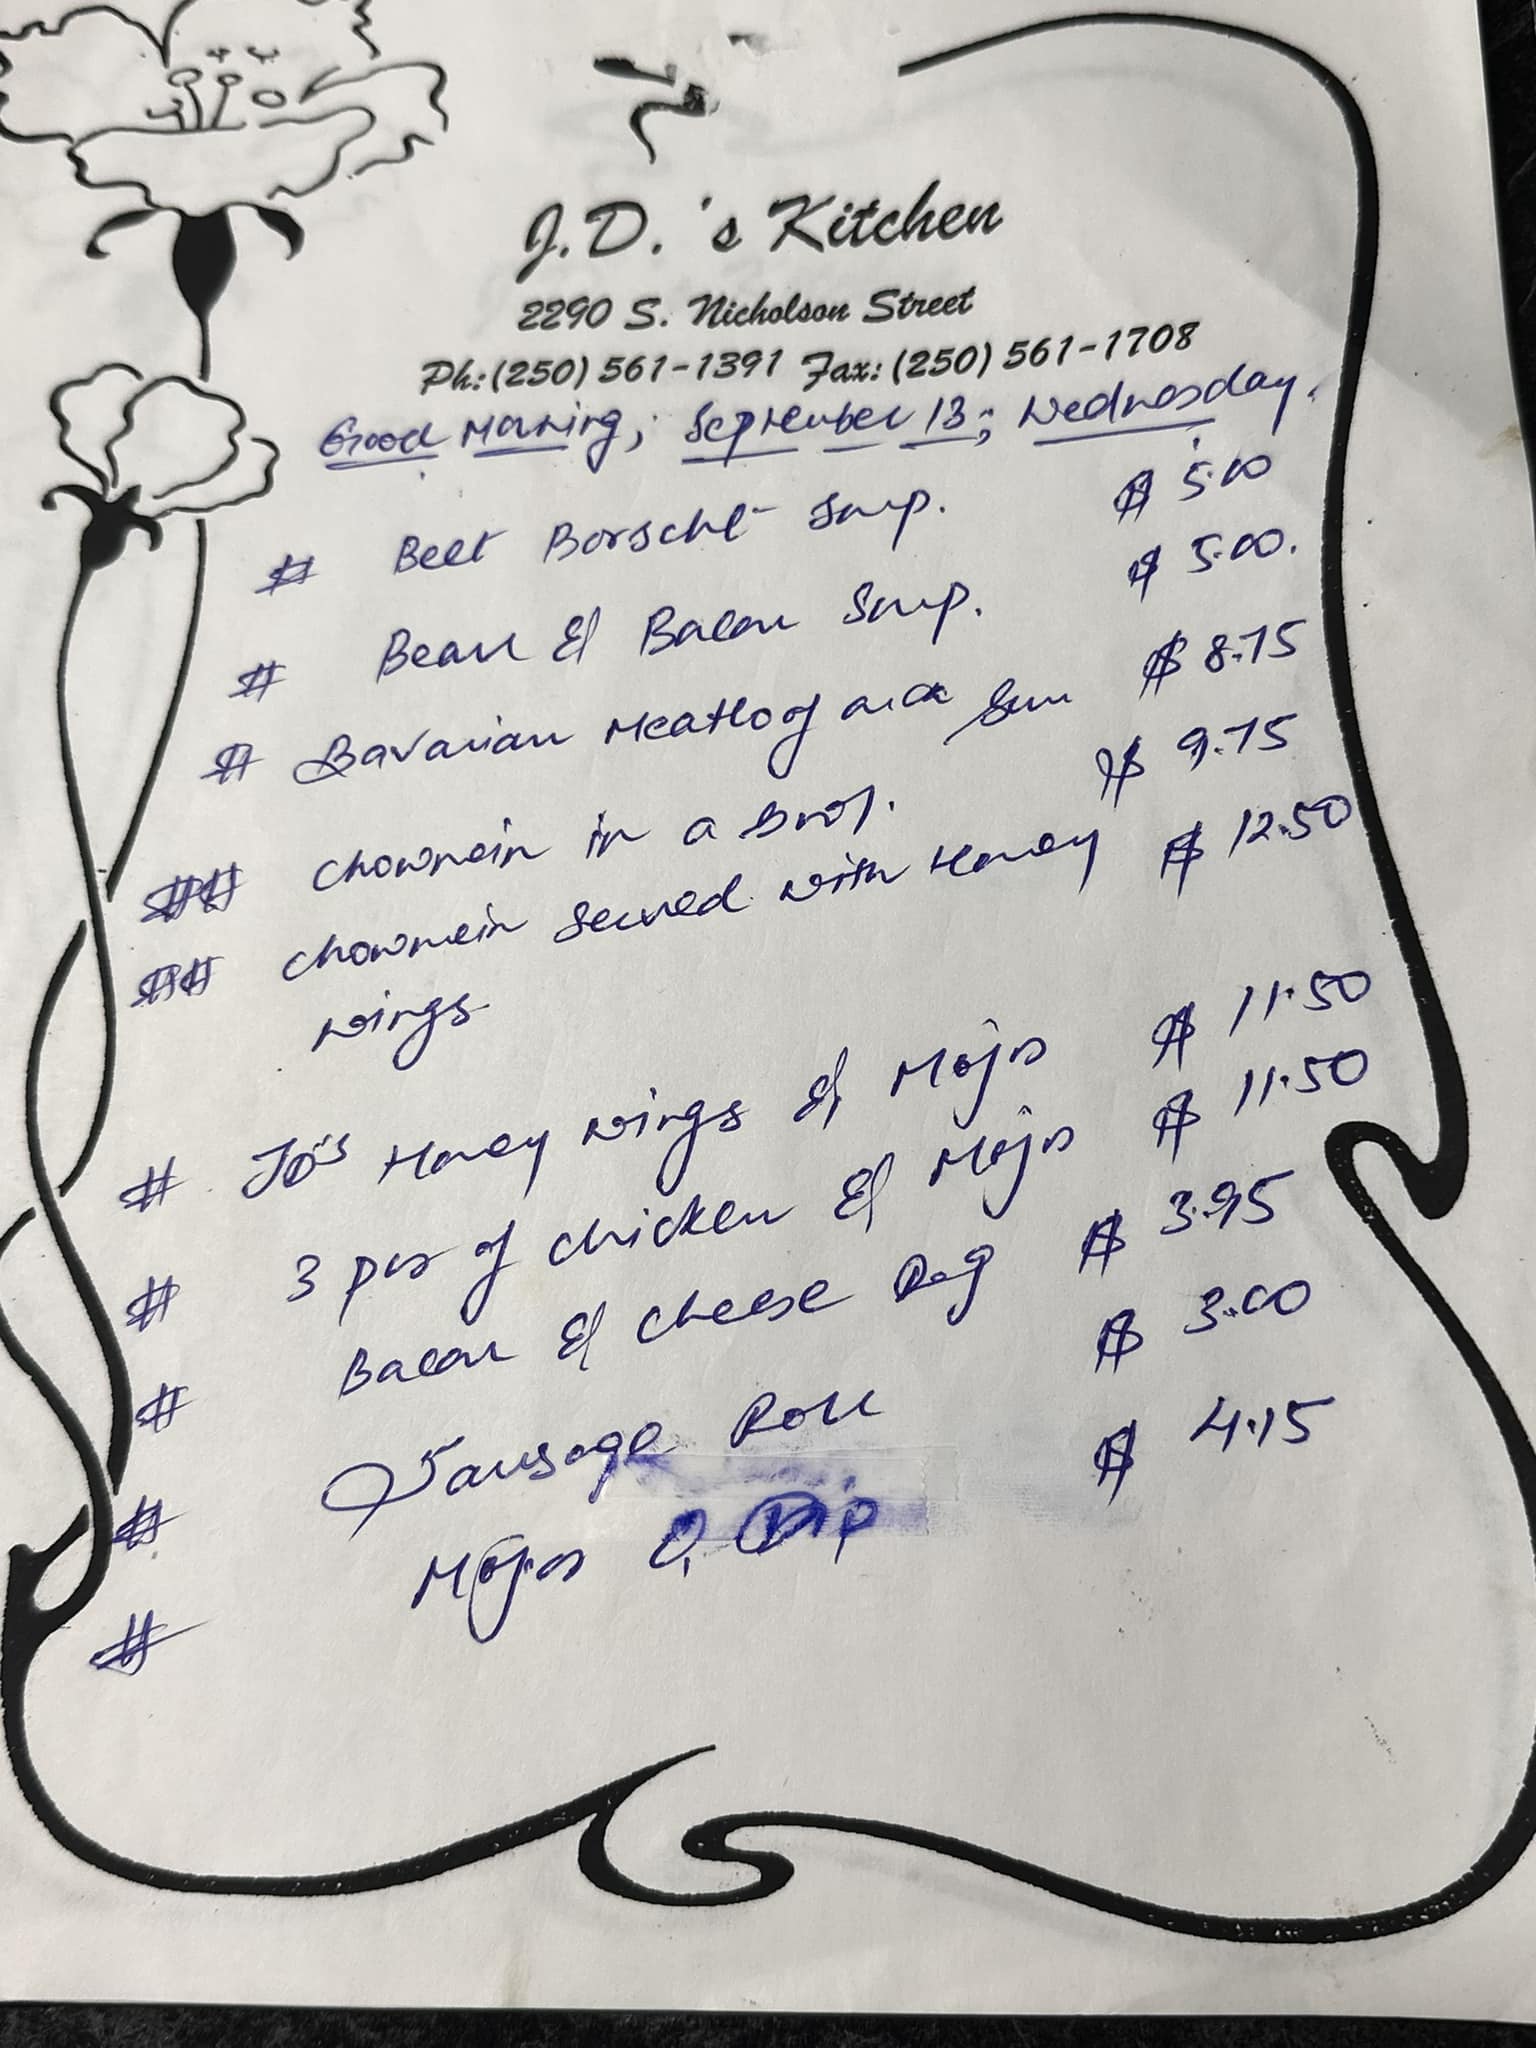 J.D.'s Kitchen
2290 S. Nicholson Street
Ph:(250) 561-1391 Fax: (250) 561-1708
Good Morning, September 13; Wednesday.
# Beet Borscht Soup. $ 5.00
# Bean & Bacon Soup. $ 5.00.
# Bavarian Meatloaf on a bun $ 8.75
## Chowmein in a box. $ 9.75
## Chowmein served with Honey $ 12.50
wings
# JD's Honey wings & Mojos $ 11.50
# 3 pcs of chicken & Mojos $ 11.50
# Bacon & cheese Dog $ 3.95
# Sausage Roll $ 3.00
# Mojos & Dip $ 4.15